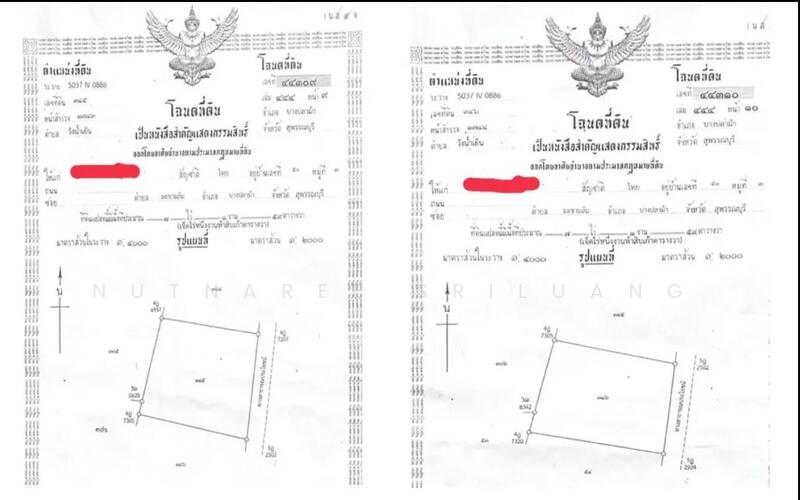 (น.ส. ๔ จ
ตำแหน่งที่ดิน
ระวาง 5037 IV 0886
เลขที่ดิน ๓๔๕
หน้าสำรวจ
ตำบล วังน้ำเย็น
โฉนดที่ดิน
เลขที่ ๔๔๓๐๙
เล่ม ๔๔๔ หน้า ๙
อำเภอ บางปลาม้า
จังหวัด สุพรรณบุรี
โฉนดที่ดิน
เป็นหนังสือสำคัญแสดงกรรมสิทธิ์
ออกโดยอาศัยอำนาจตามประมวลกฎหมายที่ดิน
ให้แก่ สัญชาติ ไทย อยู่บ้านเลขที่ หมู่ที่ ๓
ถนน
ซอย ตำบล มะขามล้ม อำเภอ บางปลาม้า จังหวัด สุพรรณบุรี
ที่ดินแปลงนี้มีเนื้อที่ประมาณ ๗ ไร่ ๑ งาน ๕๙ ตารางวา
(เจ็ดไร่หนึ่งงานห้าสิบเก้าตารางวา)
มาตราส่วนในระวาง ๑: ๔๐๐๐ รูปแผนที่ มาตราส่วน ๑: ๒๐๐๐
น
NUTNARE
4ฎ
4ฎ
7207
๓๔๕
ทางสาธารณประโยชน์
4ฎ
7305
5ฎ
๓๔๖
(น.ส.
ตำแหน่งที่ดิน
ระวาง 5037 IV 0886
เลขที่ดิน ๓๔๖
หน้าสำรวจ
ตำบล วังน้ำเย็น
โฉนดที่ดิน
เลขที่ ๔๔๓๑๐
เล่ม ๔๔๔ หน้า ๑๐
อำเภอ บางปลาม้า
จังหวัด สุพรรณบุรี
โฉนดที่ดิน
เป็นหนังสือสำคัญแสดงกรรมสิทธิ์
ออกโดยอาศัยอำนาจตามประมวลกฎหมายที่ดิน
ให้แก่ สัญชาติ ไทย อยู่บ้านเลขที่ หมู่ที่ ๓
ถนน
ซอย ตำบล มะขามล้ม อำเภอ บางปลาม้า จังหวัด สุพรรณบุรี
ที่ดินแปลงนี้มีเนื้อที่ประมาณ ๗ ไร่ ๑ งาน ๕๙ ตารางวา
(เจ็ดไร่หนึ่งงานห้าสิบเก้าตารางวา)
มาตราส่วนในระวาง ๑: ๔๐๐๐ รูปแผนที่ มาตราส่วน ๑: ๒๐๐๐
น
SRILUANG
๓๔๕
4ฎ
7305
5ฎ
๓๔๖
ทางสาธารณประโยชน์
8342
4ฎ
5ฎ
2924